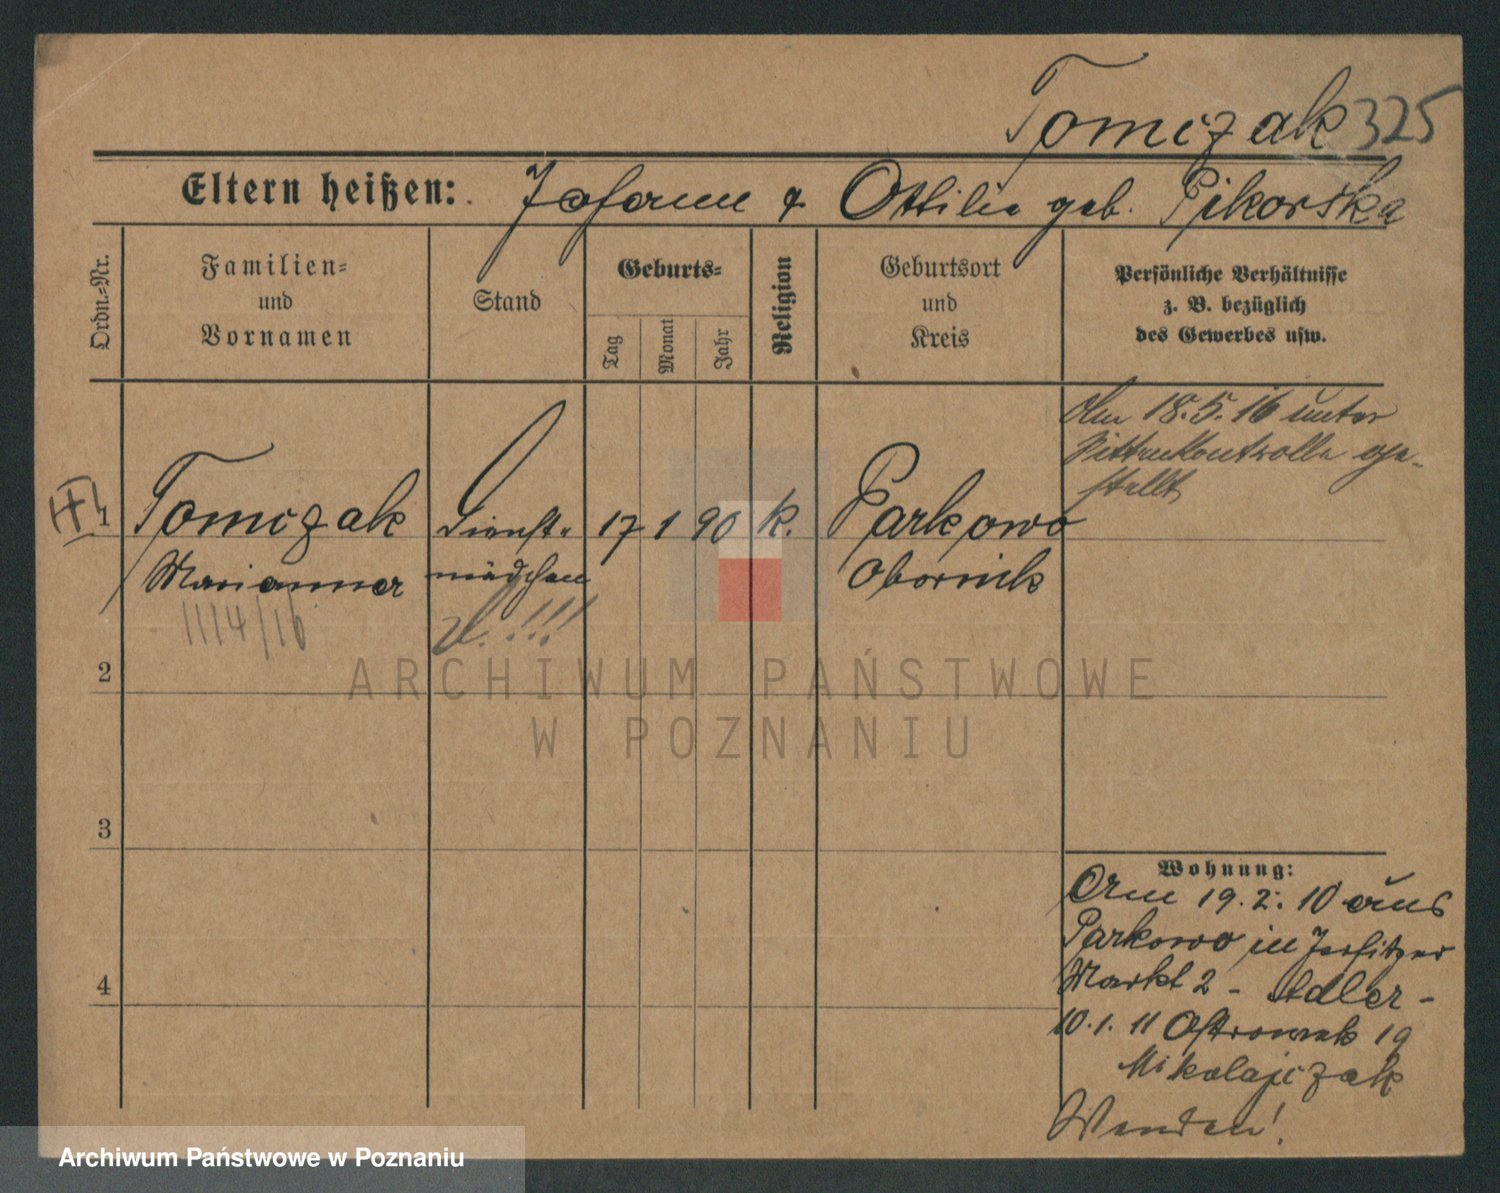 Tomczak 325
Eltern heißen: Johann & Ottilie geb. Pikorska
Ordn.-Nr.
Familien-
und
Vornamen
Stand
Geburts-
Tag
Monat
Jahr
Religion
Geburtsort
und
Kreis
Persönliche Verhältnisse
z. B. bezüglich
des Gewerbes usw.
Am 18.5.16 unter
Sittenkontrolle ge-
stellt
1 Tomczak Dienst- 17 1 90 k. Parkowo
Marianna mädchen Obornik
1114/16 !!!
2
3
4
Wohnung:
Am 19.2.10 aus
Parkowo in Jersitzer
Markt 2 - Adler -
10.1.11 Ostrowek 19
Mikolajczak
Wenden!
ARCHIWUM PAŃSTWOWE
W POZNANIU
Archiwum Państwowe w Poznaniu